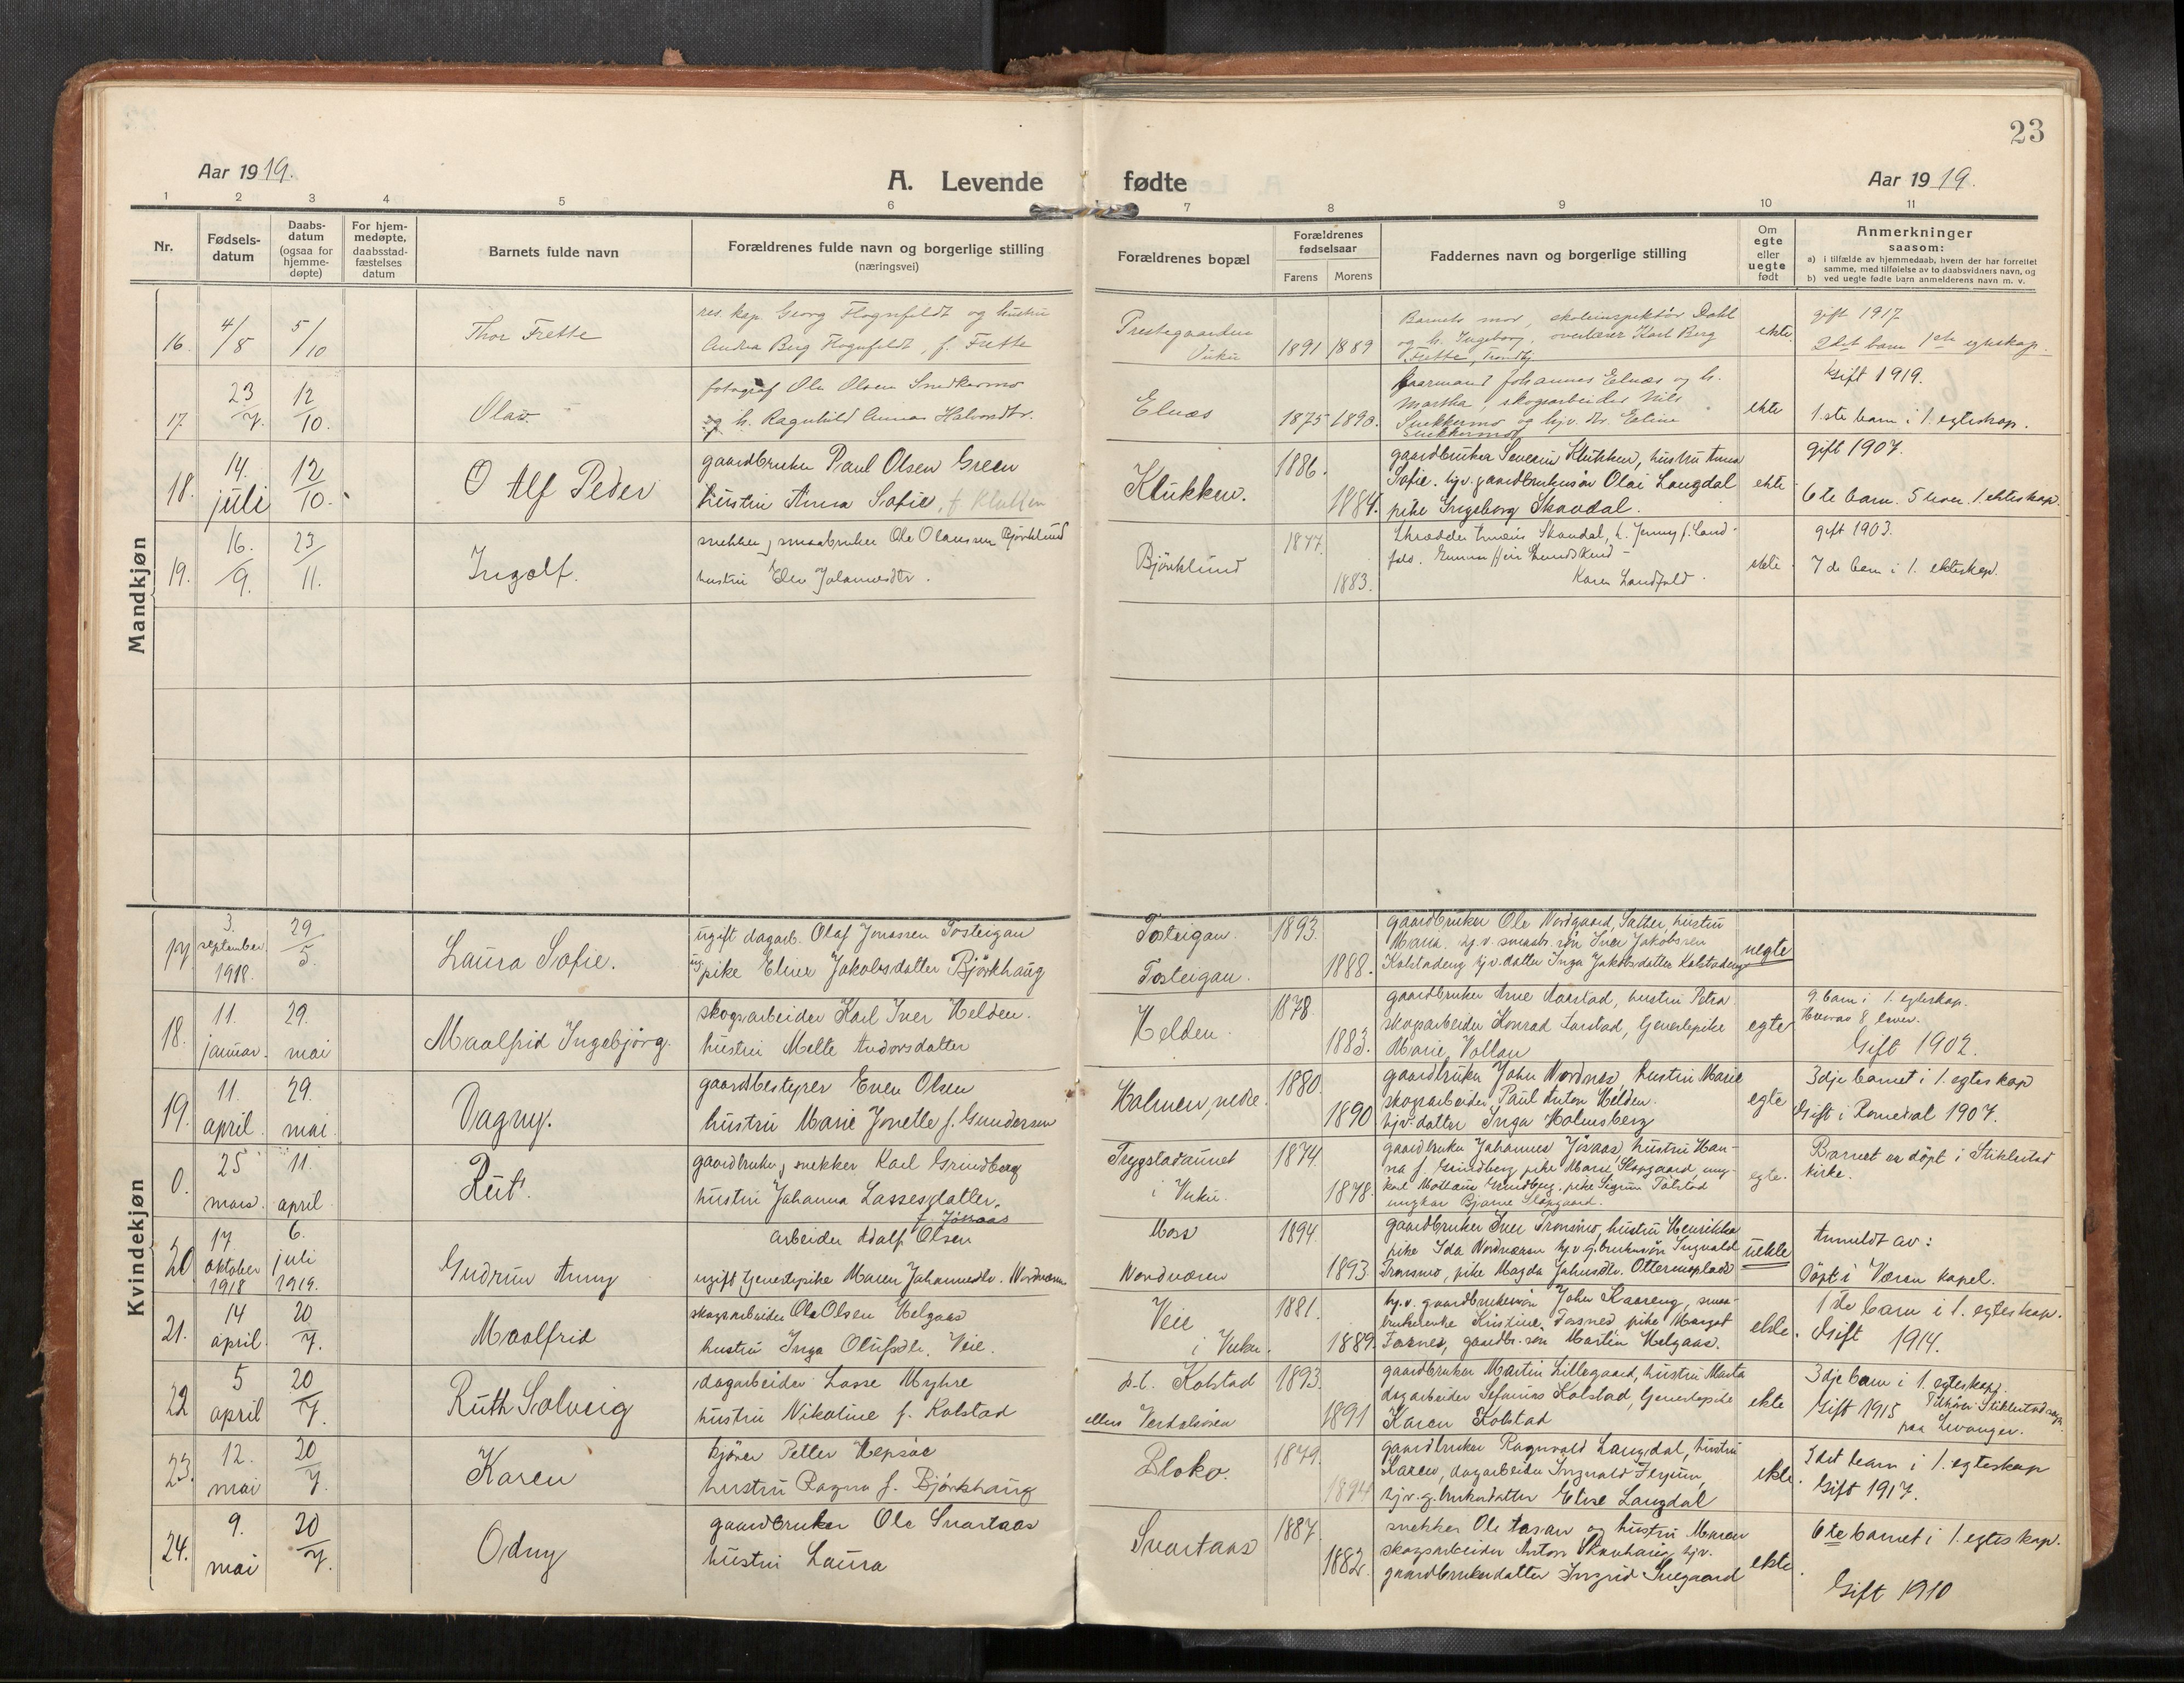 23
Aar 1919.
A. Levende fødte
Aar 1919.
1 2 3 4 5 6 7 8 9 10 11
Nr.
Fødsels-
datum
Daabs-
datum
(ogsaa for
hjemme-
døpte)
For hjem-
medøpte,
daabsstad-
fæstelses
datum
Barnets fulde navn
Forældrenes fulde navn og borgerlige stilling
(næringsvei)
Forældrenes bopæl
Forældrenes
fødselsaar
Farens Morens
Faddernes navn og borgerlige stilling
Om
egte
eller
uegte
født
Anmerkninger
saasom:
a) i tilfælde av hjemmedaab, hvem der har forrettet
samme, med tilføielse av to daabsvidners navn, og
b) ved uegte fødte barn anmelderens navn m. v.
Mandkjøn
16. 4/8 5/10
Thor Frette
res. kap. Georg Hognfeldt og hustru
Andrea Berg Hognfeldt, f. Frette
Prestegaarden
Vuku
1891 1889
Barnets mor, skoleinspektør Dahl
og h. Ingeborg, overlærer Karl Berg
Frette, Trondhj
ekte
gift 1917
2det barn 1ste egteskap.
17. 23/7. 12/10.
Olav.
fotograf Ole Olsen Snekkermo
og h. Ragnhild Anna Halvorsdtr.
Elnæs
1875 1890.
Johannes Elnæs og h.
Martha, skogsarbeider Nils
Snekkermo og hjv. dtr. Eline
Snekkermo
ekte
Gift 1919.
1ste barn i 1. egteskap.
18. 14. juli 12/10.
O Alf Peder
gaardbruker Paul Olsen Green
hustru Anna Sofie, f. Klukken
Klukken.
1886.
1884.
gaardbruker Severin Klukken, hustru Anna
Sofie. hjv. gaardbrukersøn Olai Langdal
pike Ingeborg Skavdal.
ekte
gift 1907.
6te barn. 5 lever. 1 ekteskap.
19. 16./9. 23/11.
Ingolf.
snekker, smaabruker Ole Olaussen Bjørklund
hustru Elen Johannesdtr.
Bjørklund
1877.
1883.
Skrædder Skavdal, h. Jenny f. Land-
fald.
Karen Landfald.
ekte
gift 1903.
7de barn i 1. ekteskap.
Kvindekjøn
17. 3. september 1918. 29/5.
Laura Sofie.
ugift dagarb. Olaf Jonassen Tosteigan
ug. pike Eline Jakobsdatter Bjørkhaug
Tosteigan.
Tosteigan.
1893.
1888.
gaardbruker Ole Nordgaard, Sætter hustru
Maria. hjv. smaab. søn Iver Jakobssen
Kolstadeng hjv. datter Inga Jakobsdatter Kolstadeng
uegte
18. 11. januar. 29. mai
Maalfrid Ingebjørg.
skogsarbeider Karl Iver Helden.
hustru Melte Andorsdatter
Helden.
1878.
1883.
gaardbruker Arne Aarstad, hustru Petra
skogsarbeider Konrad Aarstad, tjenestepike
Marie Vollan
egte
9. barn i 1. egteskap.
Hvorav 8 lever.
Gift 1902.
19. 11. april. 29. mai.
Dagny.
gaardbestyrer Even Olsen
hustru Marie Jonette f. Gundersen
Holmen, nedre.
1880.
1890
gaardbruker John Nordnes, hustru Marie
skogsarbeider Paul Anton Helden.
hjv. datter Inga Holmsberg
egte
3dje barnet i 1. egteskap
Gift i Romedal 1907.
0. 25 mars. 11. april
Rut.
gaardbruker, snekker Karl Grindberg
hustru Johanna Lassesdatter.
f. Jøsaas
Trygstadaunet
i Vuku.
1874.
1878.
gaardbruker Johannes Jøsaas, hustru Han-
na f. Grindberg pike Marie Skovgaard, ung-
karl Grindberg. pike Sigrun Tolstad
ungkar Bjarne Skovgaard.
egte.
Barnet er døpt i Stiklestad
kirke.
20 17. oktober 1918 6. juli 1919.
Gudrun Anny
arbeider Adolf Olsen
ugift tjenestepike Maren Johannesdtr. Nordværen
Moss
Nordværen
1894.
1893.
gaardbruker Iver Tronsmo, hustru Henrikka
pike Ida Nordværen hjv. g.brukersøn Ingvald
Tronsmo, pike Magda Johnsdtr. Ottermoplads
uekte
Anmeldt av:
Døpt i Væren kapel.
21. 14 april. 20/7.
Maalfrid
skogsarbeider Ole Olsen Helgaas
hustru Inga Olufsdtr. Veie.
Veie
i Vuku.
1881.
1889.
hj.v. gaardbrukersøn John Kaareng, smaa-
brukerenke Kristine Fosnes, pike Margot
Fosnes, gaardbr. søn Martin Helgaas.
ekte.
1ste barn i 1. egteskap.
Gift 1914.
22 5 april 20/7.
Ruth Solveig
dagarbeider Lasse Myhre
hustru Nikoline f. Kolstad
p.t. Kolstad
ellers Verdalsøren
1893.
1891
gaardbruker Martin Lillegaard, hustru Marta
dagarbeider Sefanias Kolstad, tjenestepike
Karen Kolstad
ekte
3dje barn i 1. egteskap.
Gift 1915 Tilhører Stiklestad sogn
paa Levanger.
23. 12. mai 20/7.
Karen
kjører Petter Hepsøe
hustru Ragna f. Bjørkhaug
Bloko.
1879.
1894
gaardbruker Ragnvald Langdal, hustru
Karen, dagarbeider Ingvald Jermn,
hjv. g.brukerdatter Elise Langdal
ekte.
1det barn i 1. egteskap
Gift 1917.
24. 9. mai 20/7.
Odny
gaardbruker Ole Svartaas
hustru Laura
Svartaas
1887.
1882.
snekker Ole Aasan og hustru Maren
skogsarbeider Anton Skavhaug, hjv.
gaardbrukerdatter Ingrid Suegaard
ekte.
6te barnet i 1. egteskap.
Gift 1910